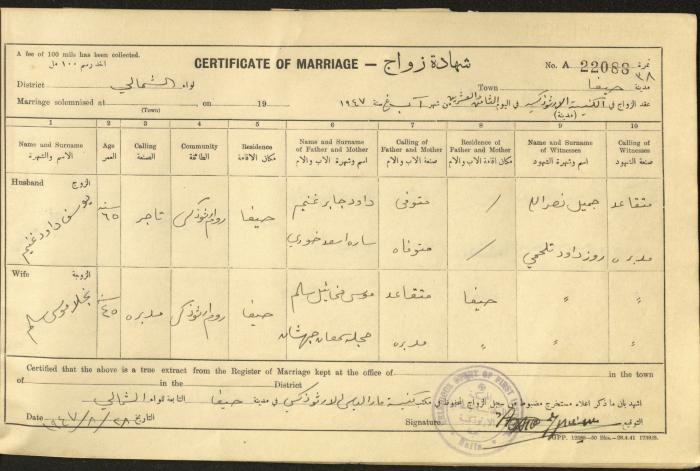 A fee of 100 mils has been collected.
اخذ رسم ١٠٠ مل
CERTIFICATE OF MARRIAGE — شهادة زواج
No. A 22088 نمرة
٣٨
District لواء الشمالي
Town حيفا مدينة
Marriage solemnised at , on 19
(Town)
عقد الزواج في الكنيسة الارثوذكسية في اليوم الثامن والعشرين من شهر آب سنة ١٩٤٧
(مدينة)
1 2 3 4 5 6 7 8 9 10
Name and Surname الاسم والشهرة
Age العمر
Calling الصنعة
Community الطائفة
Residence مكان الاقامة
Name and Surname of Father and Mother اسم وشهرة الاب والام
Calling of Father and Mother صنعة الاب والام
Residence of Father and Mother مكان اقامة الاب والام
Name and Surname of Witnesses اسم وشهرة الشهود
Calling of Witnesses صنعة الشهود
Husband الزوج
يوسف داود غنيم
سنة ٦٥
تاجر
روم ارثوذكس
حيفا
داود جابر غنيم
متوفي
/
جميل نصرالله
متقاعد
ساره اسعد خوري
متوفاه
/
روز داود تلحمي
مدبره
Wife الزوجة
نجلا موسى سالم
سنة ٤٥
مدبره
روم ارثوذكس
حيفا
موسى مخائيل سالم
متقاعد
حيفا
〃
〃
سمعان
مدبره
〃
〃
〃
Certified that the above is a true extract from the Register of Marriage kept at the office of in the town
of in the District
اشهد بان ما ذكر اعلاه مستخرج مضبوط من سجل الزواج المحفوظ في مكتب كنيسة مار الياس الارثوذكس في مدينة حيفا التابعة للواء الشمالي
Date ١٩٤٧/٨/٢٨ التاريخ
Signature التوقيع
Haifa
GPP. 12280—50 Bks.—28.4.41